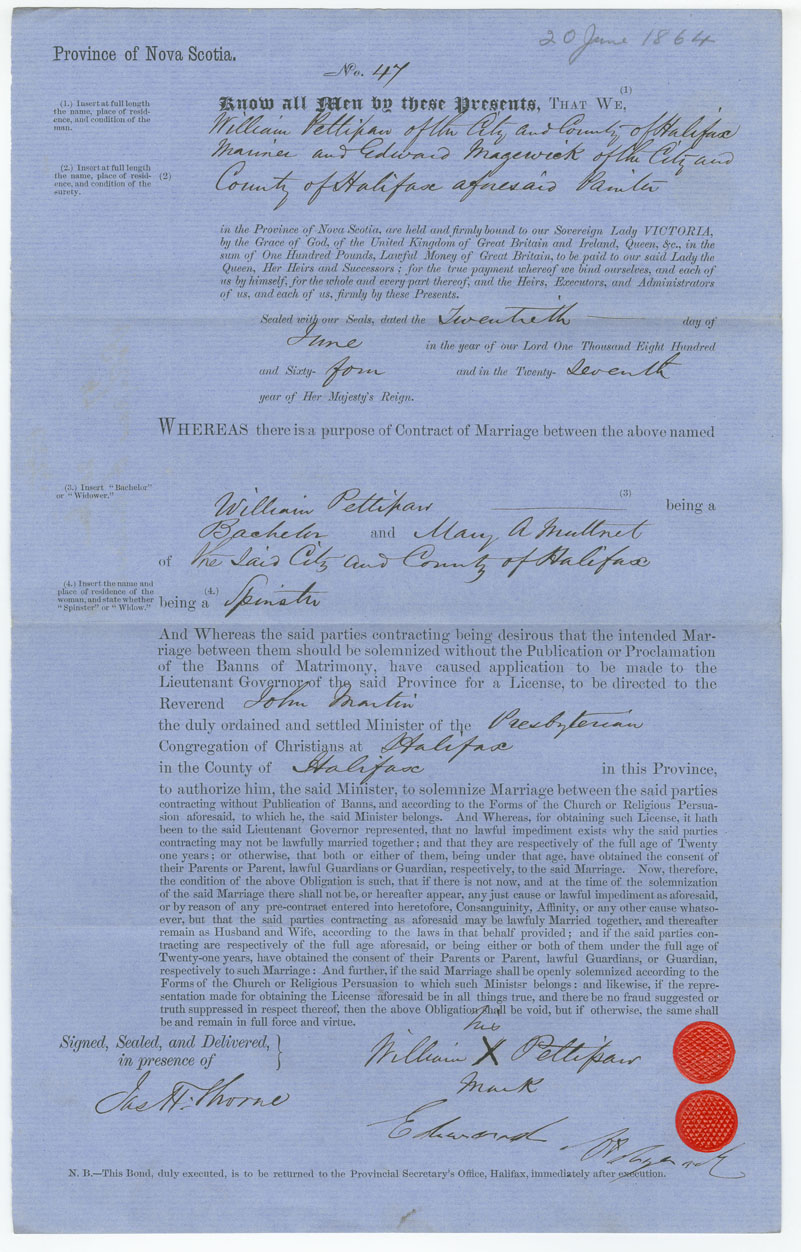 20 June 1864
Province of Nova Scotia.
No. 47
(1.) Insert at full length
the name, place of resid-
ence, and condition of the
man.
Know all Men by these Presents, THAT WE, (1)
William Pettipaw of the City and County of Halifax
Mariner and Edward Magewick of the City and
(2.) Insert at full length
the name, place of resid-
ence, and condition of the
surety.
(2) County of Halifax aforesaid Painter
in the Province of Nova Scotia, are held and firmly bound to our Sovereign Lady VICTORIA,
by the Grace of God, of the United Kingdom of Great Britain and Ireland, Queen, &c., in the
sum of One Hundred Pounds, Lawful Money of Great Britain, to be paid to our said Lady the
Queen, Her Heirs and Successors; for the true payment whereof we bind ourselves, and each of
us by himself, for the whole and every part thereof, and the Heirs, Executors, and Administrators
of us, and each of us, firmly by these Presents.
Sealed with our Seals, dated the Twentieth day of
June in the year of our Lord One Thousand Eight Hundred
and Sixty- four and in the Twenty- Seventh
year of Her Majesty's Reign.
WHEREAS there is a purpose of Contract of Marriage between the above named
(3.) Insert "Bachelor"
or "Widower."
William Pettipaw (3) being a
Bachelor and Mary A Muttnet
of the Said City and County of Halifax
(4.) Insert the name and
place of residence of the
woman, and state whether
"Spinster" or "Widow."
being a (4.) Spinster
And Whereas the said parties contracting being desirous that the intended Mar-
riage between them should be solemnized without the Publication or Proclamation
of the Banns of Matrimony, have caused application to be made to the
Lieutenant Governor of the said Province for a License, to be directed to the
Reverend John Martin
the duly ordained and settled Minister of the Presbyterian
Congregation of Christians at Halifax
in the County of Halifax in this Province,
to authorize him, the said Minister, to solemnize Marriage between the said parties
contracting without Publication of Banns, and according to the Forms of the Church or Religious Persua-
sion aforesaid, to which he, the said Minister belongs. And Whereas, for obtaining such License, it hath
been to the said Lieutenant Governor represented, that no lawful impediment exists why the said parties
contracting may not be lawfully married together; and that they are respectively of the full age of Twenty
one years; or otherwise, that both or either of them, being under that age, have obtained the consent of
their Parents or Parent, lawful Guardians or Guardian, respectively, to the said Marriage. Now, therefore,
the condition of the above Obligation is such, that if there is not now, and at the time of the solemnization
of the said Marriage there shall not be, or hereafter appear, any just cause or lawful impediment as aforesaid,
or by reason of any pre-contract entered into heretofore, Consanguinity, Affinity, or any other cause whatso-
ever, but that the said parties contracting as aforesaid may be lawfuly Married together, and thereafter
remain as Husband and Wife, according to the laws in that behalf provided; and if the said parties con-
tracting are respectively of the full age aforesaid, or being either or both of them under the full age of
Twenty-one years, have obtained the consent of their Parents or Parent, lawful Guardians, or Guardian,
respectively to such Marriage: And further, if the said Marriage shall be openly solemnized according to the
Forms of the Church or Religious Persuasion to which such Ministsr belongs: and likewise, if the repre-
sentation made for obtaining the License aforesaid be in all things true, and there be no fraud suggested or
truth suppressed in respect thereof, then the above Obligation shall be void, but if otherwise, the same shall
be and remain in full force and virtue.
Signed, Sealed, and Delivered,
in presence of
Jas H. Thorne
his
William X Pettipaw
Mark
Edward
N. B.—This Bond, duly executed, is to be returned to the Provincial Secretary's Office, Halifax, immediately after execution.